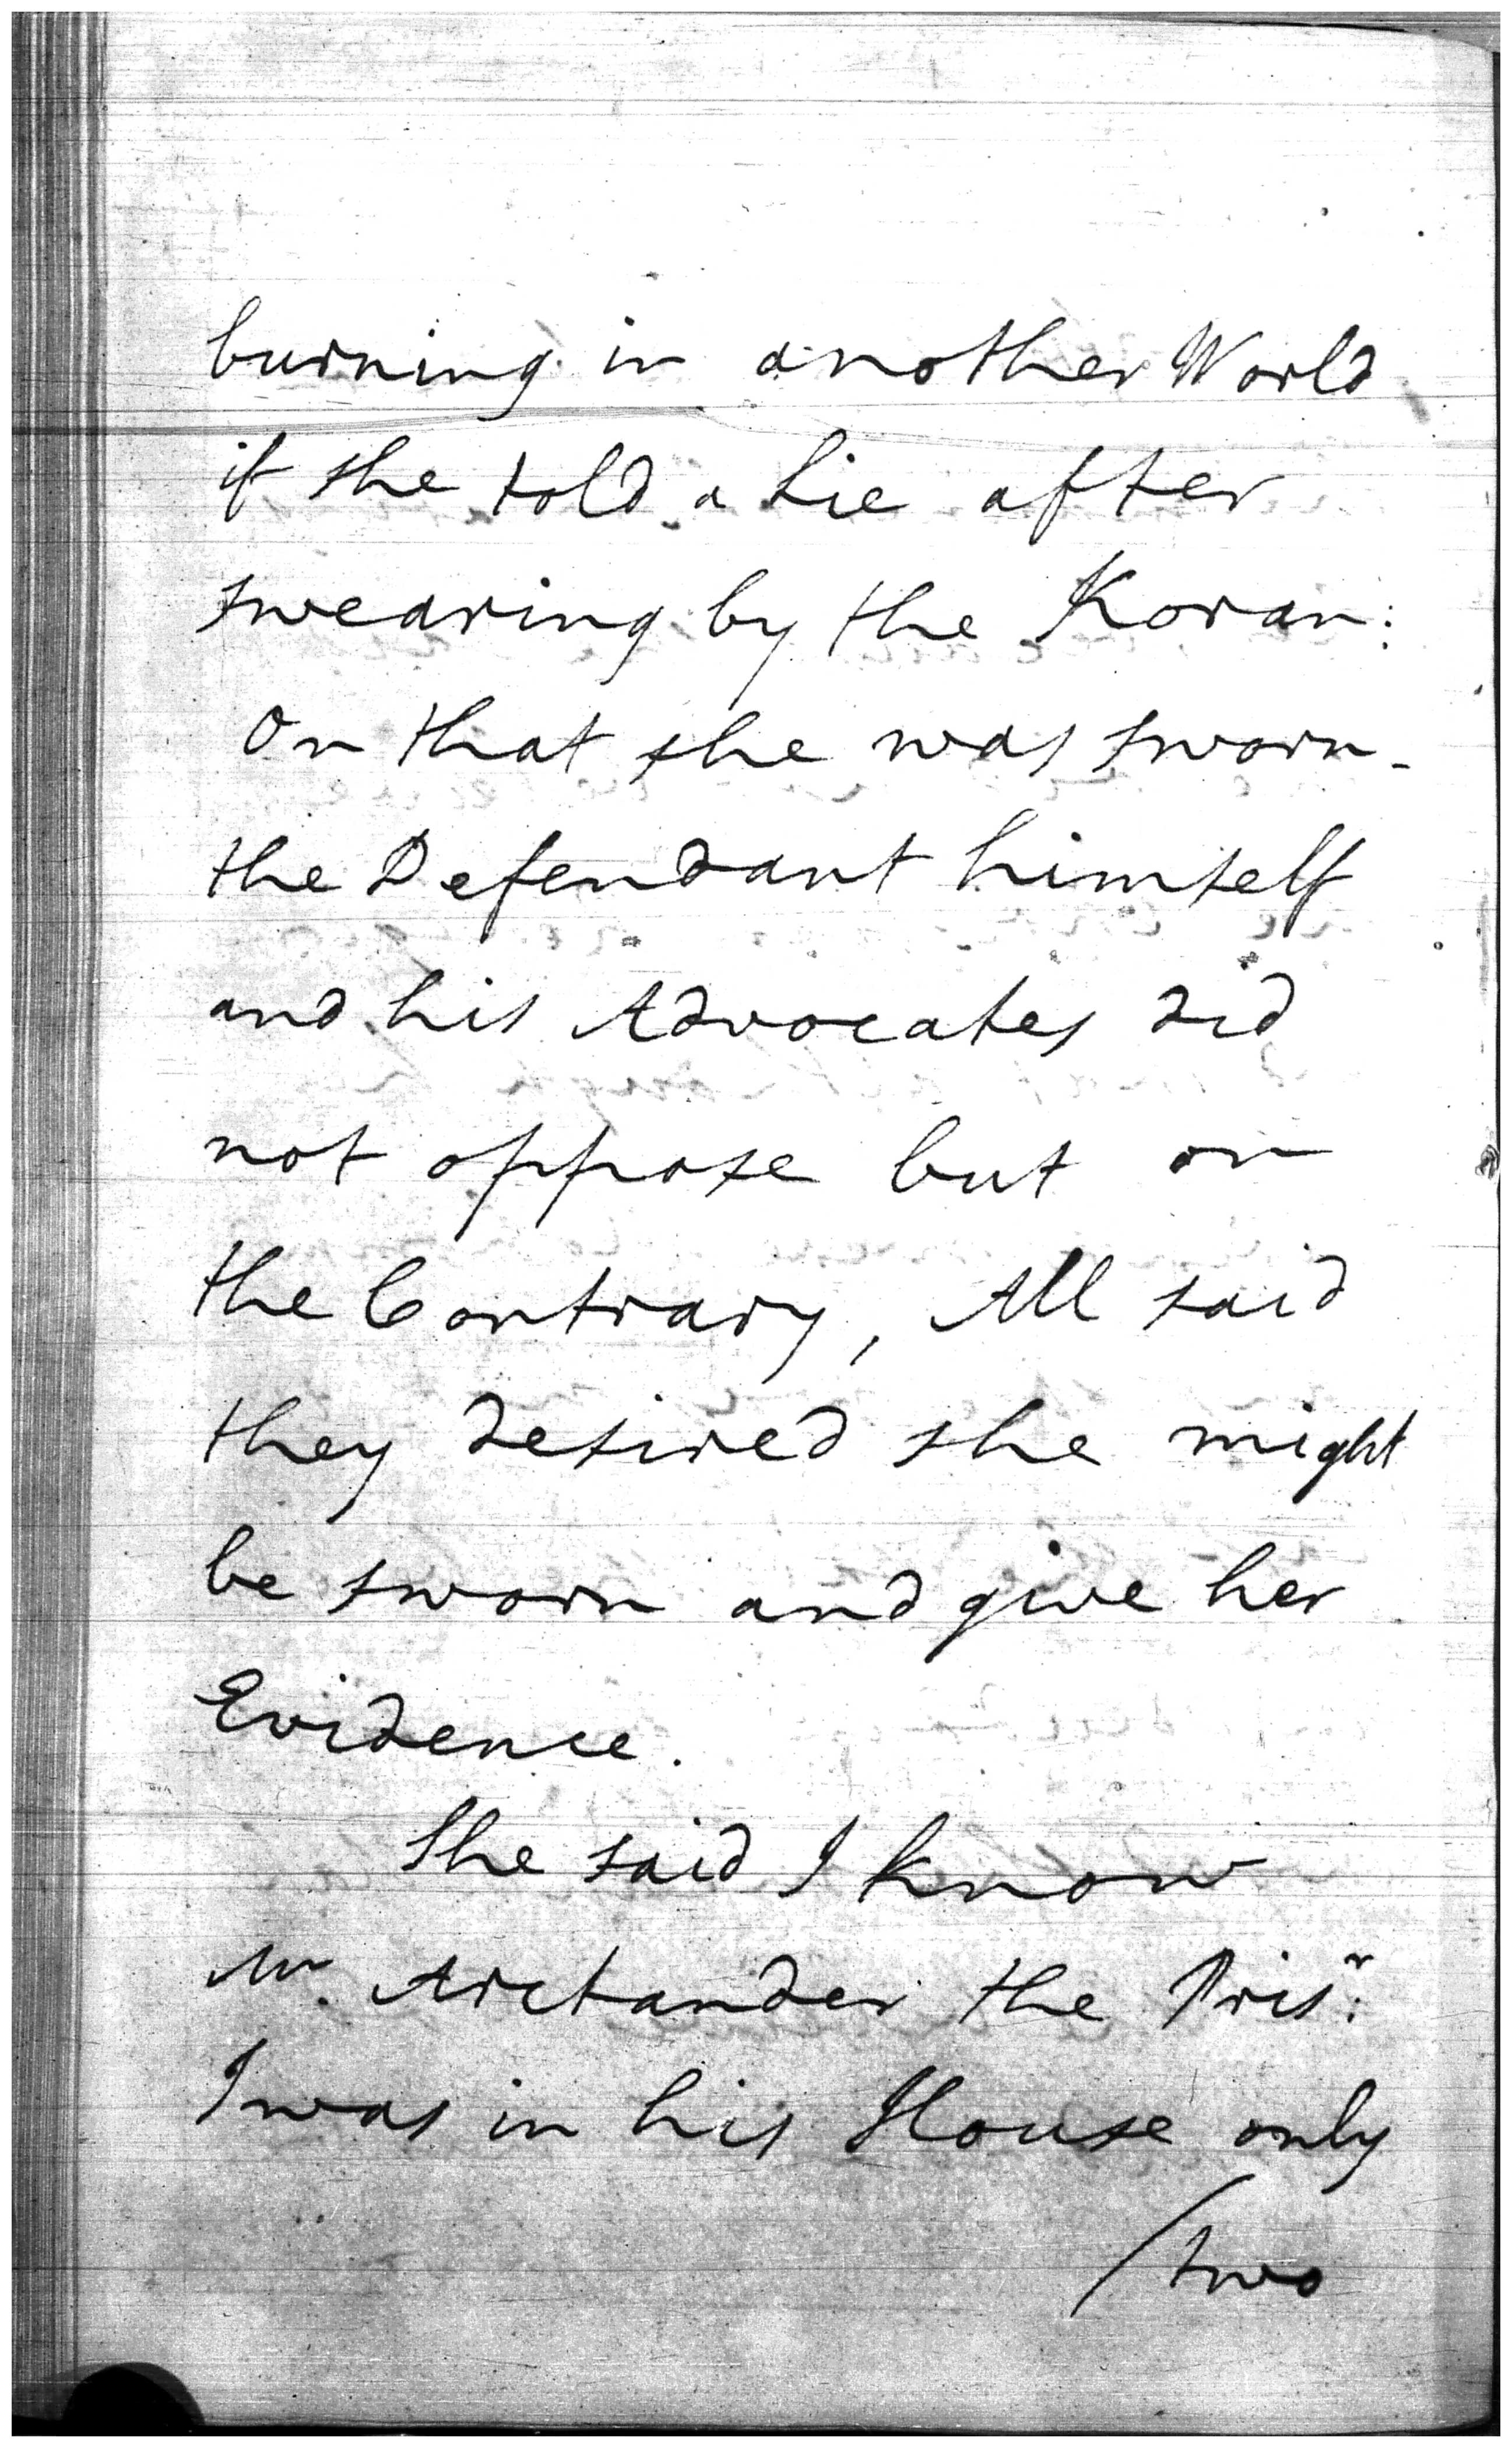 burning in another World
if she told a Lie after
swearing by the Koran:
On that she was sworn -
the Defendant himself
and his Advocates did
not oppose but on
the Contrary, All said
they desired she might
be sworn and give her
Evidence.
She said I know
Mr. the Prisr:
I was in his House only
/two